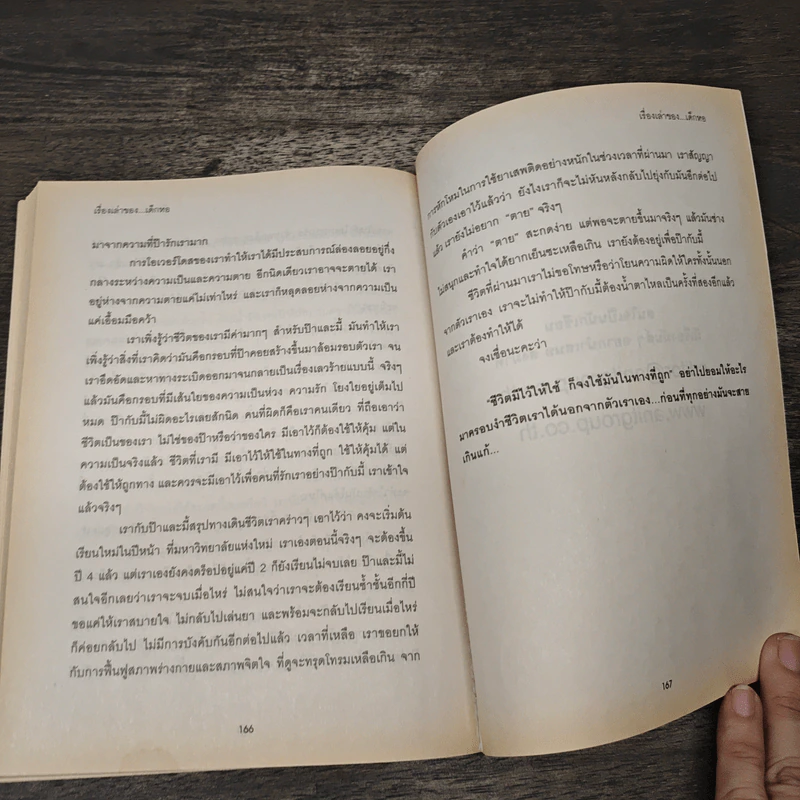 เรื่องเล่าของ...เด็กหอ
มาจากความที่ป๊ารักเรามาก
การโอเวอร์โดสของเราทำให้เราได้มีประสบการณ์ล่องลอยอยู่กึ่ง
กลางระหว่างความเป็นและความตาย อีกนิดเดียวเราอาจจะตายได้ เรา
อยู่ห่างจากความตายแค่ไม่เท่าไหร่ และเราก็หลุดลอยห่างจากความเป็น
แค่เอื้อมมือคว้า
เราเพิ่งรู้ว่าชีวิตของเรามีค่ามากๆ สำหรับป๊าและมี้ มันทำให้เรา
เพิ่งรู้ว่าสิ่งที่เราคิดว่ามันคือกรอบที่ป๊าคอยสร้างขึ้นมาล้อมรอบตัวเรา จน
เราอึดอัดและหาทางระเบิดออกมาจนกลายเป็นเรื่องเลวร้ายแบบนี้ จริงๆ
แล้วมันคือกรอบที่มีเส้นใยของความเป็นห่วง ความรัก โยงใยอยู่เต็มไป
หมด ป๊ากับมี้ไม่ผิดอะไรเลยสักนิด คนที่ผิดก็คือเราคนเดียว ที่ถือเอาว่า
ชีวิตเป็นของเรา ไม่ใช่ของป๊าหรือว่าของใคร มีเอาไว้ก็ต้องใช้ให้คุ้ม แต่ใน
ความเป็นจริงแล้ว ชีวิตที่เรามี มีเอาไว้ให้ใช้ในทางที่ถูก ใช้ให้คุ้มได้ แต่
ต้องใช้ให้ถูกทาง และควรจะมีเอาไว้เพื่อคนที่รักเราอย่างป๊ากับมี้ เราเข้าใจ
แล้วจริงๆ
เรากับป๊าและมี้สรุปทางเดินชีวิตเราคร่าวๆ เอาไว้ว่า คงจะเริ่มต้น
เรียนใหม่ในปีหน้า ที่มหาวิทยาลัยแห่งใหม่ เราเองตอนนี้จริงๆ จะต้องขึ้น
ปี 4 แล้ว แต่เราเองยังคงดร็อปอยู่แค่ปี 2 ก็ยังเรียนไม่จบเลย ป๊าและมี้ไม่
สนใจอีกเลยว่าเราจะจบเมื่อไหร่ ไม่สนใจว่าเราจะต้องเรียนซ้ำชั้นอีกกี่ปี
ขอแค่ให้เราสบายใจ ไม่กลับไปเล่นยา และพร้อมจะกลับไปเรียนเมื่อไหร่
ก็ค่อยกลับไป ไม่มีการบังคับกันอีกต่อไปแล้ว เวลาที่เหลือ เราขอยกให้
กับการฟื้นฟูสภาพร่างกายและสภาพจิตใจ ที่ดูจะทรุดโทรมเหลือเกิน จาก
166
เรื่องเล่าของ...เด็กหอ
การหักโหมในการใช้ยาเสพติดอย่างหนักในช่วงเวลาที่ผ่านมา เราสัญญา
กับตัวเองเอาไว้แล้วว่า ยังไงเราก็จะไม่หันหลังกลับไปยุ่งกับมันอีกต่อไป
แล้ว เรายังไม่อยาก "ตาย" จริงๆ
คำว่า "ตาย" สะกดง่าย แต่พอจะตายขึ้นมาจริงๆ แล้วมันช่าง
ไม่สนุกและทำใจได้ยากเย็นซะเหลือเกิน เรายังต้องอยู่เพื่อป๊ากับมี้
ชีวิตที่ผ่านมาเราไม่ขอโทษหรือว่าโยนความผิดให้ใครทั้งนั้นนอก
จากตัวเราเอง เราจะไม่ทำให้ป๊ากับมี้ต้องน้ำตาไหลเป็นครั้งที่สองอีกแล้ว
และเราต้องทำให้ได้
จงเชื่อนะคะว่า
"ชีวิตมีไว้ให้ใช้ ก็จงใช้มันในทางที่ถูก" อย่าไปยอมให้อะไร
มาครอบงำชีวิตเราได้นอกจากตัวเราเอง...ก่อนที่ทุกอย่างมันจะสาย
เกินแก้...
167